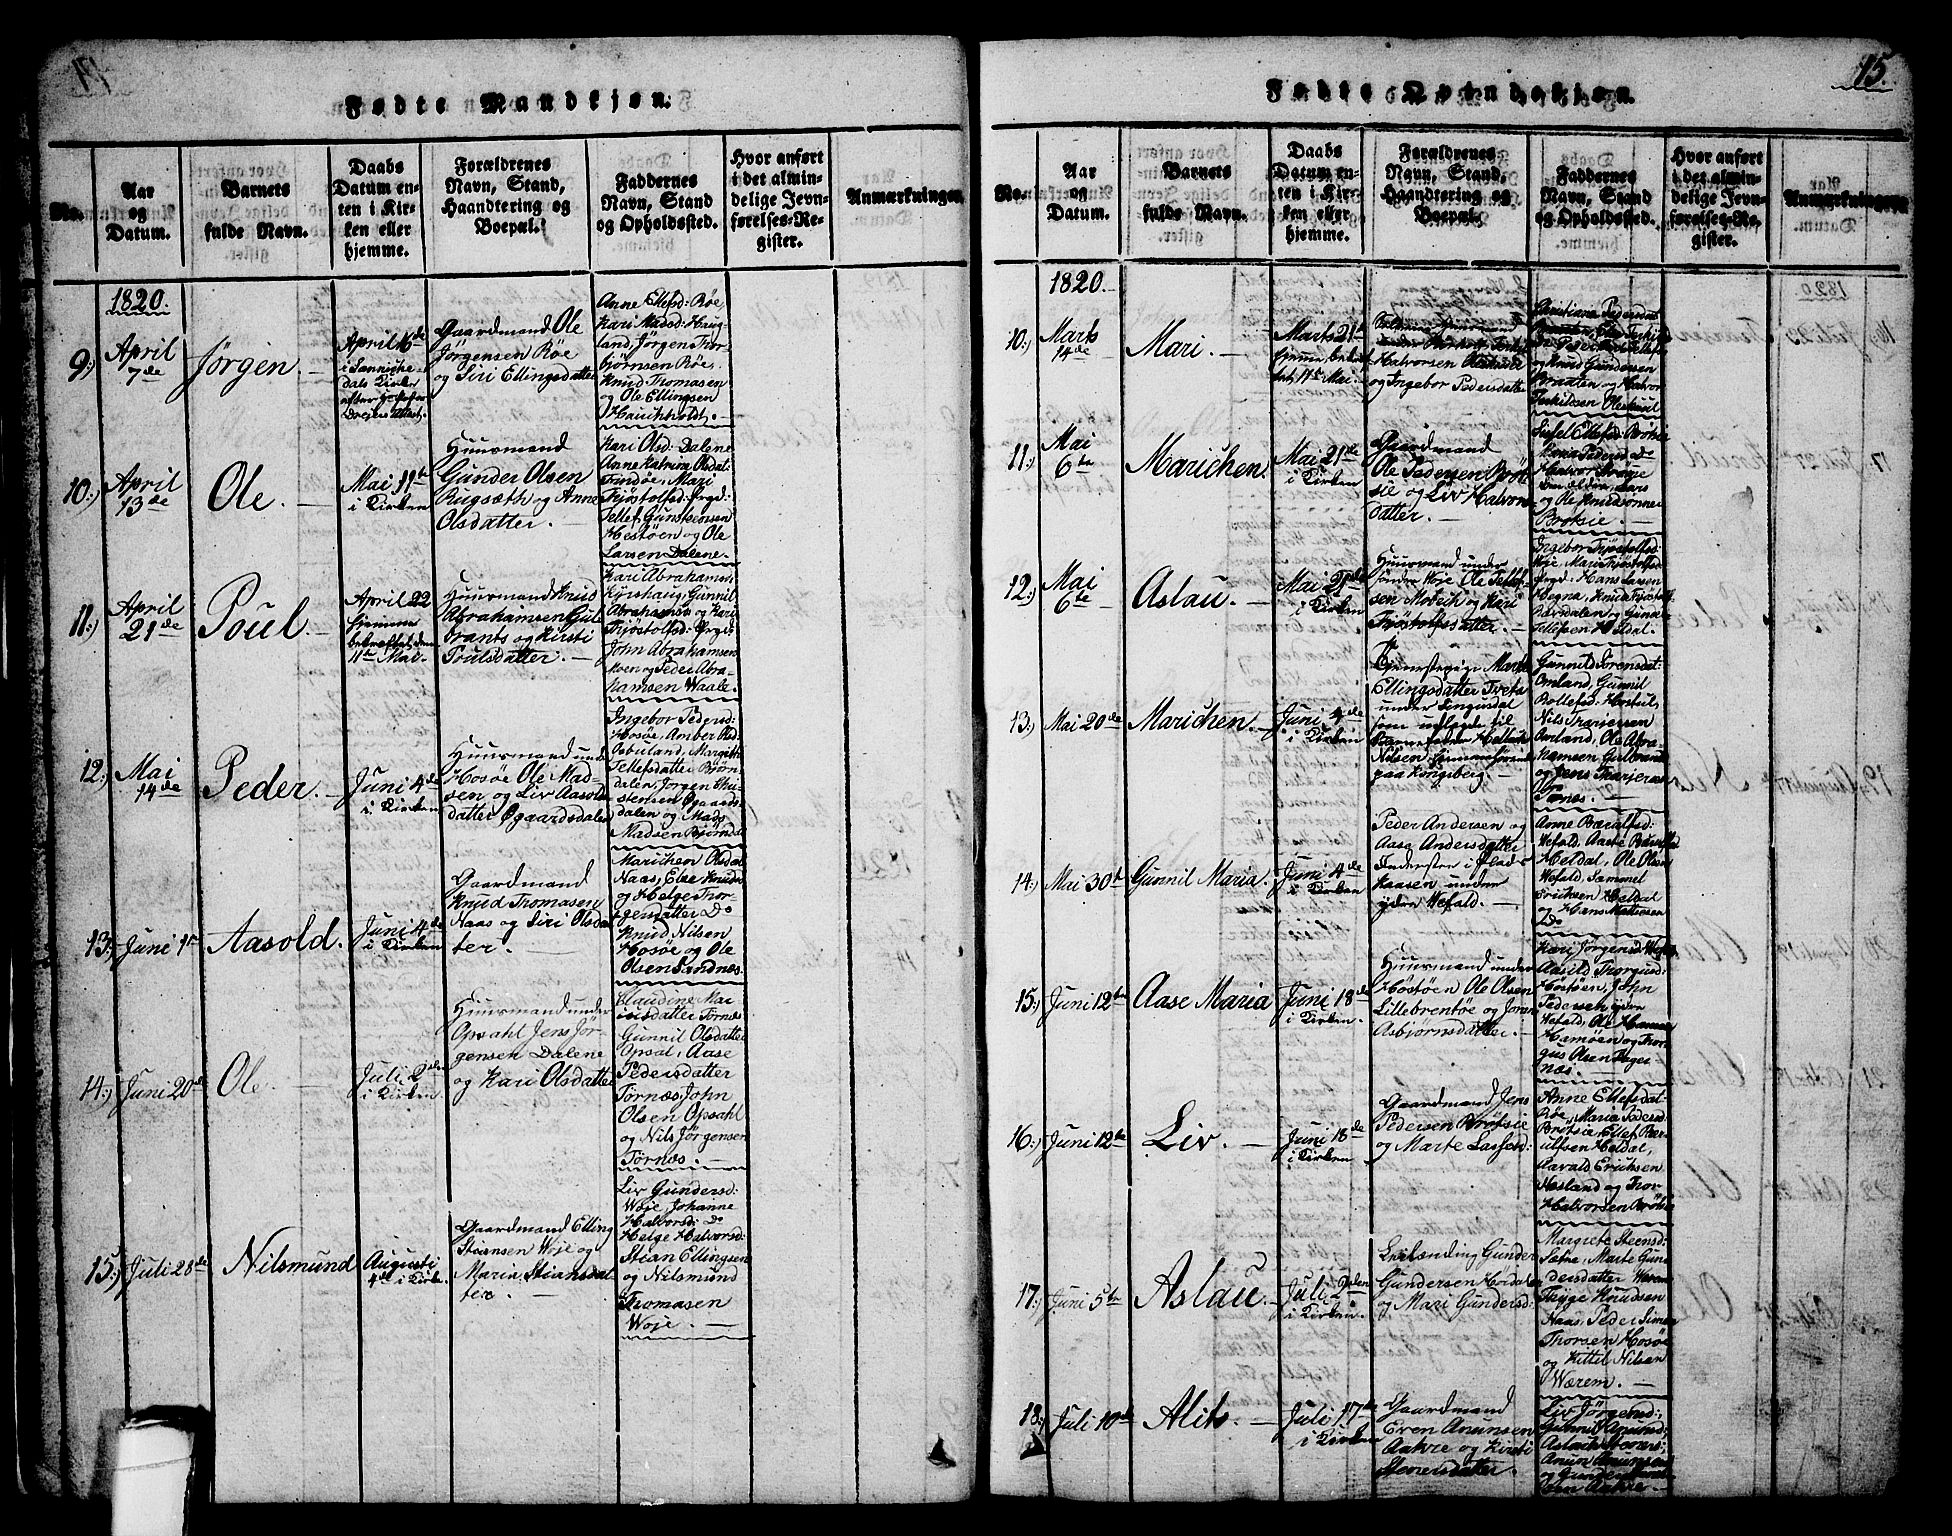 Fødte Mandkjøn.
No.
Aar
og
Datum.
Barnets
fulde Navn.
Daabs
Datum en-
ten i Kir-
ken eller
hjemme.
Forældrenes
Navn, Stand,
Haandtering og
Boepæl.
Faddernes
Navn, Stand
og Opholdssted.
Hvor anført
i det almin-
delige Jevn-
førelses-Re-
gister.
Anmærkninger.
1820.
9.)
April
7de
Jørgen.
April 16de
i Sannike-
dals Kirke
Gaardmand Ole
Jørgensen Røe
og Siri Ellingsdatter
Anne Ellefsd: Røe
Kari Madsd: Haug-
land, Jørgen Tor-
bjørnsen Røe,
Knud Thomasen
og Ole Ellingsen
Hauchholdt.
10.)
April
13de
Ole.
Mai 11te
i Kirken
Huusmand
Gunder Olsen
Rugsæth og Anne
Olsdatter.
Kari Olsd: Dalene
Anne Katrine Olsdat:
Tundøe, Mari
Tjøstolfsd: Ørgd:
Tellef Gunsteensen
Hestøen og Ole
Larsen Dalene.
11.)
April
21de
Poul
April 22
hjemme
bekræftet den
11te Mai
Huusmand Knud
Abrahamsen Gul-
brants og Kirsti
Poulsdatter.
Kari Abrahamsd:
Kjrshaug, Gunnil
Abrahamsd: og Kari
Tjøstolfsd: Ørgd:
John Abrahamsen
Moen og Peder Abra-
hamsen Waale.
12.)
Mai
14de
Peder.
Juni 4de
i Kirken
Huusmand und:
Hosøe Ole Mad-
sen og Liv Aasolds-
datter Øgaardsdalen
Ingebor Pedersd:
Hosøe, Amber Olsd:
Asbuland, Margith
Tellefsdatter Bjørn-
dalen, Jørgen Chri-
stensen Øgaards-
dalen og Mads
Madsen Bjørndal
13.)
Juni 1ste
Aasold.
Juni 4de
i Kirken
Gaardmand
Knud Tromasen
Naas og Siri Olsdat-
ter.
Marichen Olsdat
Naas, Else Knuds
og Helge Thor-
gersdatter Do
Knud Nilsen
Hosøe og Ole
Olsen Sandnæs.
14.)
Juni 20de
Ole
Juli 2den
i Kirken
Huusmand under
Opsahl Jens Jør-
gensen Dalene
og Kari Olsdatter
Claudine Mau-
ritsdatter Tørnæs
Gunnil Olsdatter
Opsal, Aase
Pedersdatter
Tørnæs, John
Olsen Opsahl
og Nils Jørgensen
Tørnæs.
15.)
Juli 28de
Nilsmund
Augusti
4de i Kirk:
Gaardmand Elling
Stiansen Woje og
Maria Stiansdat-
ter.
Liv Gundersd:
Woje, Johanne
Halvorsd: Do
Helge Halvorsd:
Stian Ellingsen
og Nilsmund
Thomasen
Woje.
15.
Fødte Qvindekjøn.
No.
Aar
og
Datum.
Barnets
fulde Navn.
Daabs
Datum en-
ten i Kir-
ken eller
hjemme.
Forældrenes
Navn, Stand,
Haandtering og
Boepæl.
Faddernes
Navn, Stand
og Opholdssted.
Hvor anført
i det almin-
delige Jevn-
førelses-Re-
gister.
Anmærkninger.
1820.
10.)
Marts
14de
Mari.
Marts 21de
Halvorsen
og Ingebor Pedersdatter
og Knud Gundersen
Braaten og Halvor
Terkildsen
11.)
Mai
6te
Marichen.
Mai 21de
i Kirken
Gaardmand
Ole Pedersen Brøt-
sie og Liv Halvors-
datter.
Sissel Ellefsd: Brøtsie
Maria Pedersd: Do
og Ole Knudsønner
Brøtsie.
12.)
Mai
6te
Aslau.
Mai 21de
i Kirken
Huusmand under
Søndre Woje Ole Tellef-
sen Mobech og Kari
Tjøstolfsdatter.
Ingebor Tjøstolfsd:
Woje, Mari Tjøstolfsd:
Ørgd: Hans Larsen
Hegna, Knud Tjøstolfs
og Gunder
Tellefsen Hildal.
13.)
Mai 20de
Marichen.
Juni 4de
i Kirken
Tjenestepige Marte
Ellingsdatter Tveta
under Lingusdal
som udlagde til
Barnefader Halvor
Nilsen
paa Kongsberg.
Gunnild Sørensdat:
Omland, Gunnil
Rollefsd: Hostul,
Nils Tarjersen
Omland, Ole Abra-
hamsen Gulbrants
og Jens Tarjersen
Tørnæs.
14.)
Mai 30te
Gunnil Maria.
Juni 4de
i Kirken
Peder Andersen og
Aase Andersdatter
Inderster i Plads
Haasen under
yden Wefald.
Anne Bærulfsd:
Wefald, Aaste Bærulfsd
Heldal, Ole Olsen
Wefald, Sammel
Erichsen Heldal
og Hans Mathiesen
Do
15.)
Juni 12te
Aase Maria
Juni 18de
i Kirken
Huusmand under
Hostøen Ole Olsen
Lillebrentøe og Joran
Asbjørnsdatter.
Kari Jørgensd: Wefald
Aasild Thorgusd:
Hostøen, John
Pedersen yden
Wefald, Ole Hansen
Hamøen og Thor-
gus Olsen Dager-
næs.
16.)
Juni 12te
Liv.
Juni 18de
i Kirken
Gaardmand Jens
Pedersen Brøtsie
og Marte Lassesd:
Anne Ellefsdat:
Røe, Maria Pedersd:
Brøtsie, Ellef Bær-
ulfsen Heldal,
Aavald Erichsen
Næsland og Thor
Halvorsen Brøtsie
17.)
Juni 5te
Aslau.
Juli 2den
i Kirken
Leilænding Gunder
Gundersen Hordalen
og Mari Gundersd:
Margrete Steensd:
Sætre, Marte Gun-
dersdatter Warem
Thyge Knudsen
Haas, Peder Simen
Thorsen Hosøe
og Kittil Nilsen
Wærem.
18.)
Juli 10de
Alits.
Juli 17de
i Kirken
Gaardmand
Even Anunsen
Aakre og Kirsti
Stenersdatter.
Liv Jørgensd:
Gunnil Anunsd:
Aslach Steners:
Anun Anunsen
og Gunder
Aakre.